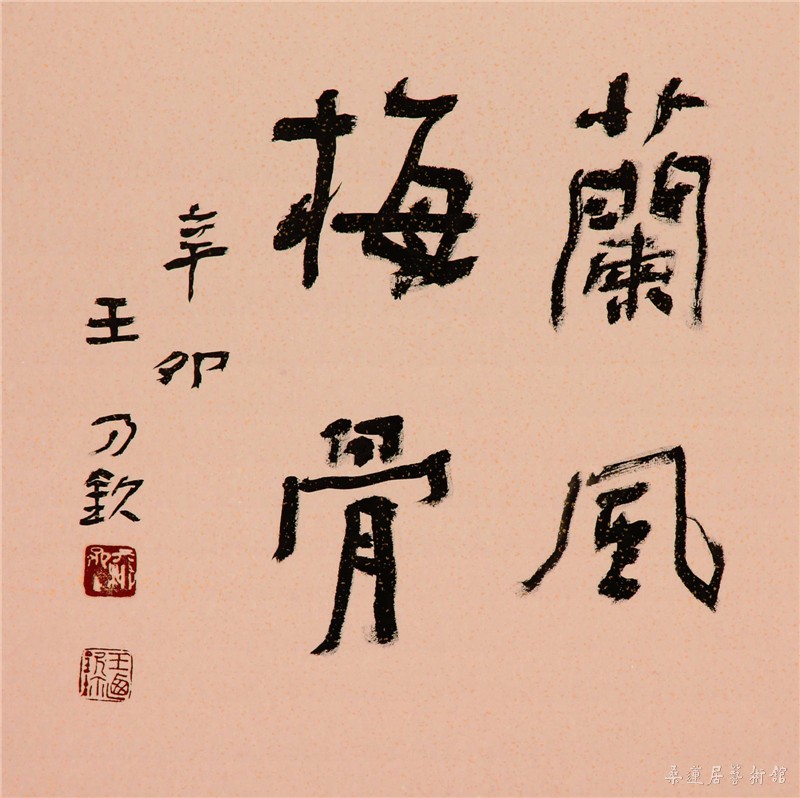 蘭風
梅骨
辛卯
王乃欽
桑蓮居藝術館